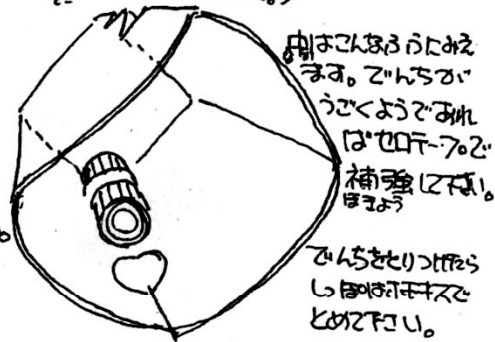 中はこんなふうにみえ
ます。でんちが
うごくようであれ
ばセロテープで
補強して下さい。
ほきょう
でんちをとりつけたら
しっぽはホチキスで
とめて下さい。